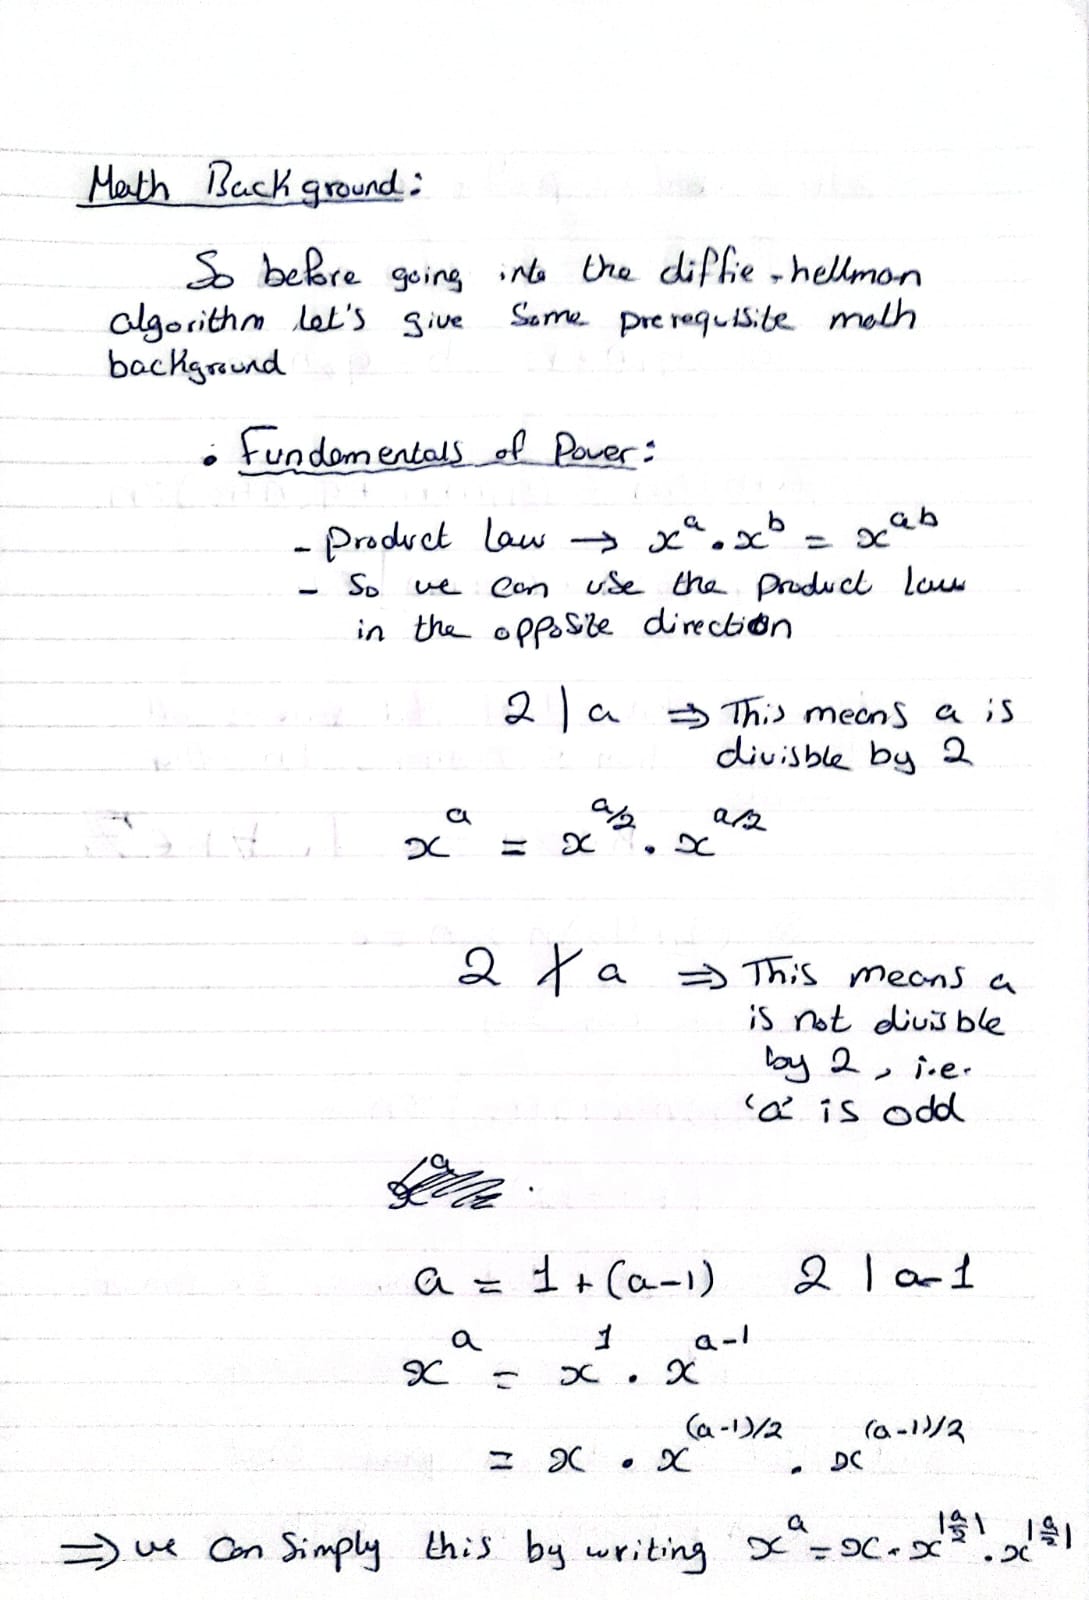 Math Background:
So before going into the diffie-hellman
algorithm let's give some prerequisite math
background
• Fundamentals of Power:
- Product Law → x^a . x^b = x^ab
- So we can use the product law
in the opposite direction
2 | a ⇒ This means a is
divisble by 2
x^a = x^a/2 . x^a/2
2 ∤ a ⇒ This means a
is not divisble
by 2, i.e.
'a' is odd
a = 1 + (a-1) 2 | a-1
x^a = x^1 . x^a-1
= x . x^(a-1)/2 . x^(a-1)/2
⇒ we can simply this by writing x^a = x . x^|a/2| . x^|a/2|